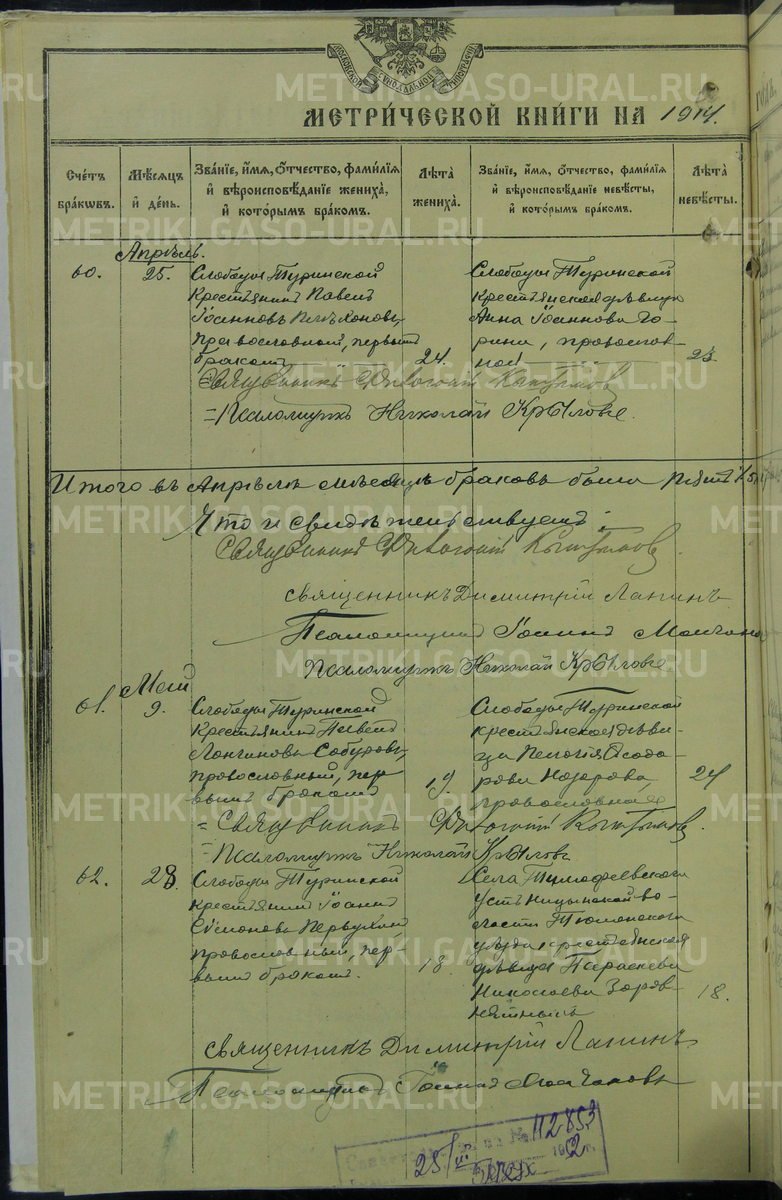 МОСКОВСКОЙ СѴНОДАЛЬНОЙ ТИПОГРАФІИ
МЕТРИ́ЧЕСКОЙ КНИ́ГИ НА 1914.
Сче́тъ бра́кѡвъ.
Мѣ́сѧцъ и҆ де́нь.
Зва́нїе, и҆́мѧ, ѻ҆́тчество, фами́лїѧ и҆ вѣроисповѣ́данїе жениха̀, и҆ кото́рымъ бра́комъ.
Лѣ́та жениха̀.
Зва́нїе, и҆́мѧ, ѻ҆́тчество, фами́лїѧ и҆ вѣроисповѣ́данїе невѣ́сты, и҆ кото́рымъ бра́комъ.
Лѣ́та невѣ́сты.
Апрѣль.
60.
25.
Слободы Туринской
крестьянинъ Павелъ
Іоанновъ
православный, первымъ
бракомъ
24.
Слободы Туринской
крестьянская дѣвица
Анна Іоаннова Го-
рина, православ-
ной
23.
Священникъ
=Псаломщикъ Николай Крыловъ.
Итого въ Апрѣлѣ мѣсяцѣ браковъ было
Что и свидѣтельствуемъ:
Священникъ
священникъ Димитрій Лапинъ
Псаломщикъ Іоаннъ
Псаломщикъ Николай Крыловъ
Май
61.
9.
Слободы Туринской
крестьянинъ Павелъ
Лонгиновъ Собуровъ,
православный, пер-
вымъ бракомъ
19.
Слободы Туринской
крестьянская дѣви-
ца Пелагія Ѳеодо-
рова Назарова,
православная
24
=Священникъ
=Псаломщикъ Николай Крыловъ
62.
28.
Слободы Туринской
крестьянинъ Іоаннъ
Симоновъ Первухинъ
православный, пер-
вымъ бракомъ.
18.
Села Тимофеевскаго
Усть Ницынской во-
лости Тюменскаго
уѣзда крестьянская
дѣвица Параскева
Николаева
18.
священникъ Димитрій Лапинъ
Псаломщикъ Іоаннъ
№ 112853
METRIKI.GASO-URAL.RU